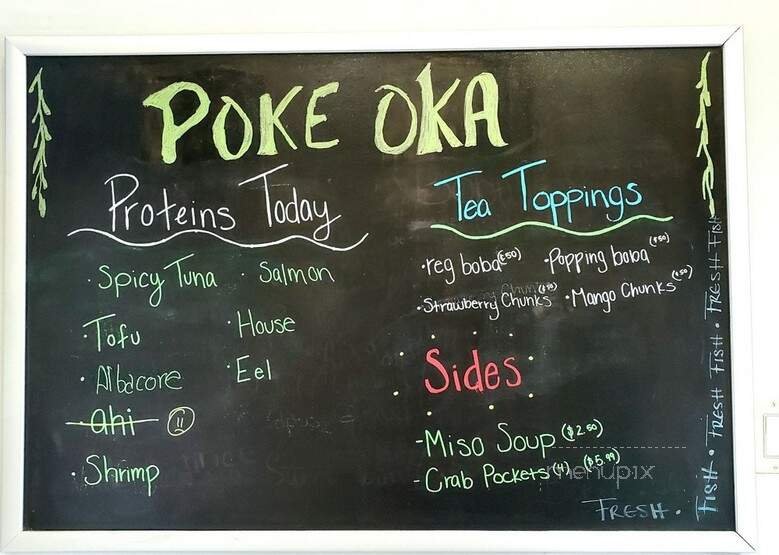 POKE OKA
Proteins Today
· Spicy Tuna · Salmon
· Tofu · House
· Albacore · Eel
· ahi
· Shrimp
Tea Toppings
· reg boba (.50) · Popping boba (.50)
· Strawberry Chunks · Mango Chunks (.50)
Sides
- Miso Soup ($2.50)
- Crab Pockets (4) ($5.99)
FRESH · FISH · FRESH FISH · FRESH FISH
menupix